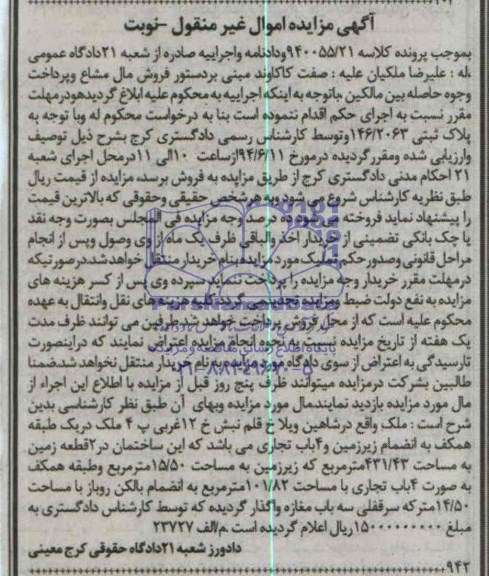 آگهی مزایده اموال غیر منقول -نوبت
بموجب پرونده کلاسه ۹۴۰۰۵۵/۲۱ودادنامه واجراییه صادره از شعبه ۲۱دادگاه عمومی
له : علیرضا ملکیان علیه : صفت کاکاوند مبنی بردستور فروش مال مشاع وپرداخت
وجوه حاصله بین مالکین .باتوجه به اینکه اجراییه به محکوم علیه ابلاغ گردیدهودرمهلت
مقرر نسبت به اجرای حکم اقدام ننموده است بنا به درخواست محکوم له وبا توجه به
پلاک ثبتی ۱۴۶/۲۰۶۳وتوسط کارشناس رسمی دادگستری کرج بشرح ذیل توصیف
وارزیابی شده ومقررگردیده درمورخ ۹۴/۶/۱۱ازساعت ۱۰الی ۱۱درمحل اجرای شعبه
۲۱ احکام مدنی دادگستری کرج از طریق مزایده به فروش برسد، مزایده از قیمت ریال
طبق نظریه کارشناس شروع می شود وبه هرشخص حقیقی وحقوقی که بالاترین قیمت
را پیشنهاد نماید فروخته می شود ده درصد وجه مزایده فی المجلس بصورت وجه نقد
یا چک بانکی تضمینی از خریدار اخذ والباقی ظرف یک ماه از وی وصول وپس از انجام
مراحل قانونی وصدور حکم تملیک مورد مزایده بنام خریدار منتقل خواهد شد.درصورتیکه
درمهلت مقرر خریدار وجه مزایده را پرداخت ننماید سپرده وی پس از کسر هزینه های
مزایده به نفع دولت ضبط ومزایده تجدید می گردد کلیه هزینه های نقل وانتقال به عهده
محکوم علیه است که از محل فروش پرداخت خواهد شد.طرفین می توانند ظرف مدت
یک هفته از تاریخ مزایده نسبت به نحوه انجام مزایده اعتراض نمایند که دراینصورت
تارسیدگی به اعتراض از سوی دادگاه مورد مزایده بنام خریدار منتقل نخواهد شدضمنا
طالبین بشرکت درمزایده میتوانند ظرف پنج روز قبل از مزایده با اطلاع این اجراء از
مال مورد مزایده بازدید نمایندمال مورد مزایده وبهای آن طبق نظر کارشناسی بدین
شرح است : ملک واقع درشاهین ویلا خ قلم نبش خ ۱۲غربی پ ۴ ملک دریک طبقه
همکف به انضمام زیرزمین و۴باب تجاری می باشد که این ساختمان در۲قطعه زمین
به مساحت ۴۳۱/۴۳مترمربع که زیرزمین به مساحت ۱۵/۵۰مترمربع وطبقه همکف
به صورت ۴باب تجاری با مساحت ۱۰۱/۸۲مترمربع به انضمام بالکن روباز با مساحت
۱۴/۵۰مترکه سرقفلی سه باب مغازه واگذار گردیده که توسط کارشناس دادگستری به
مبلغ ۱۵۰۰۰۰۰۰۰۰۰ریال اعلام گردیده است .م/الف ۲۳۷۲۷
دادورز شعبه ۲۱دادگاه حقوقی کرج معینی
۹۴۲
پایگاه اطلاع رسانی مناقصه و مزایده